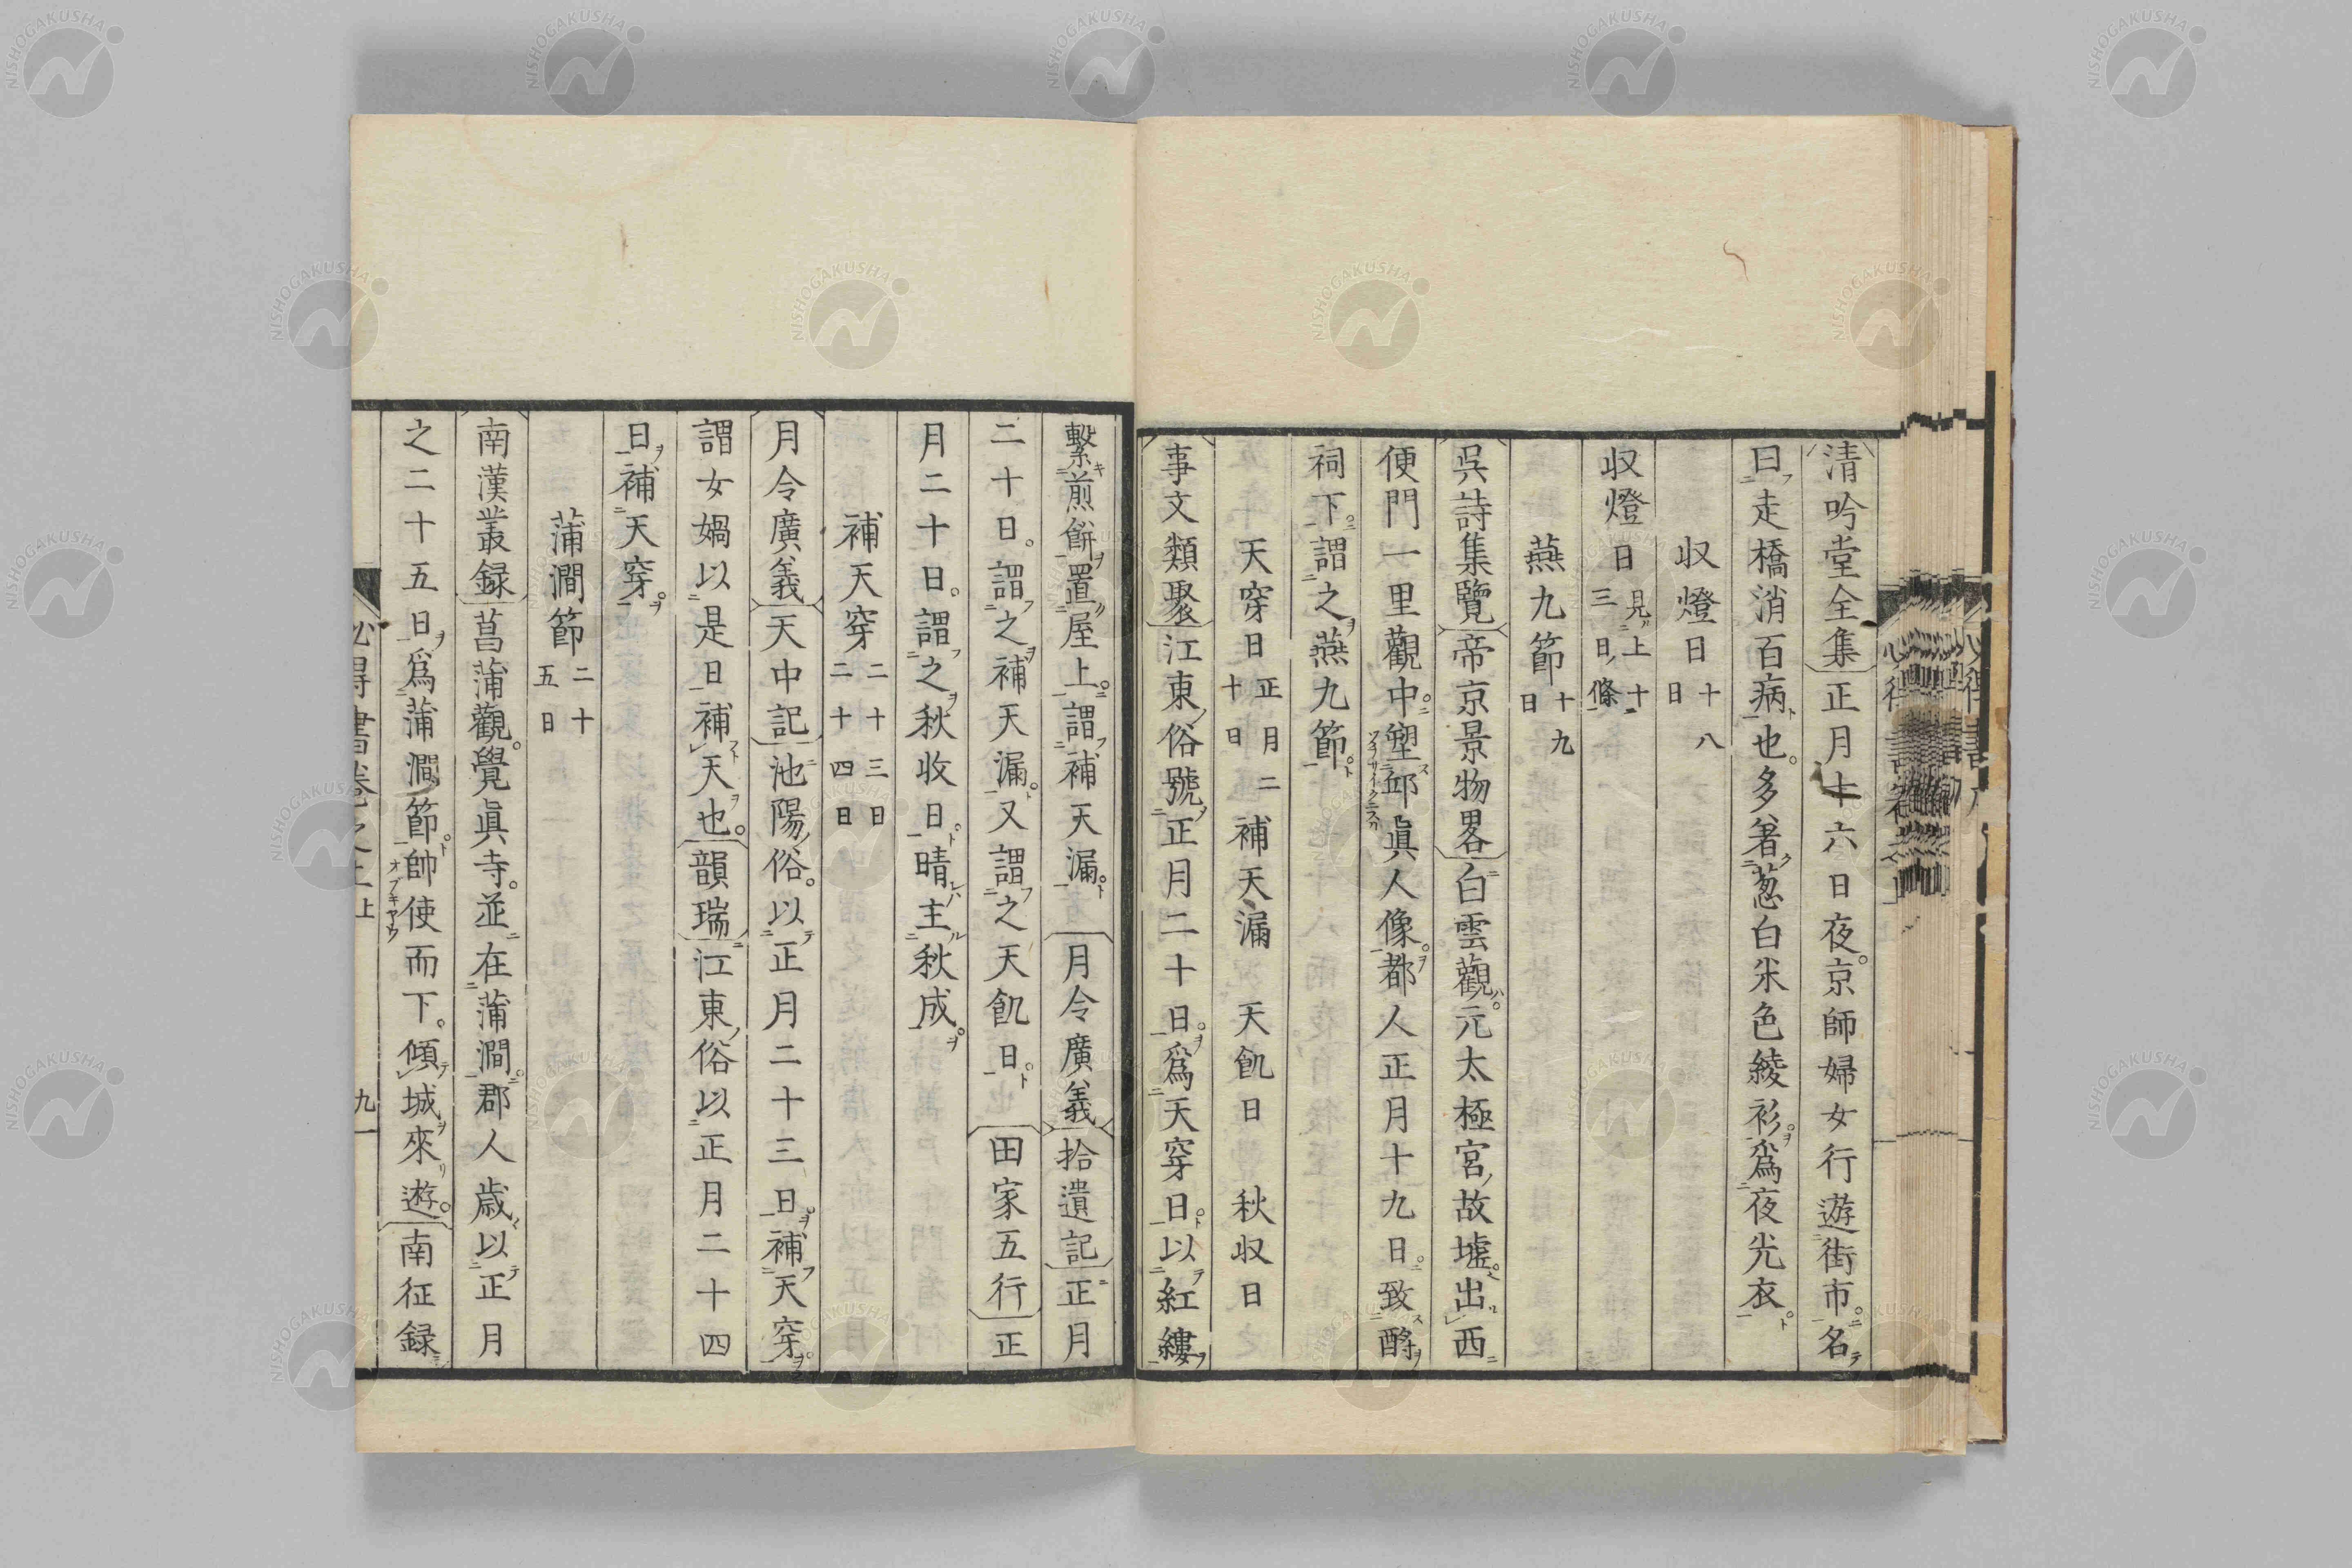 清吟堂全集正月十六日夜。京師婦女行遊街市。名
曰走橋消百病也。多著葱白米色綾衫。爲夜光衣。
収燈日十八日
収燈日見上十三日條
燕九節十九日
呉詩集覽帝京景物畧白雲觀。元太極宮故墟。出西
便門一里觀中。塑邱眞人像。都人正月十九日。致酹
祠下。謂之燕九節。
天穿日正月二十日 補天漏 天飢日 秋収日
事文類聚江東俗號正月二十日。爲天穿日。以紅縷
繫煎餅置屋上。謂補天漏。月令廣義拾遺記正月
二十日。謂之補天漏。又謂之天飢日。田家五行正
月二十日。謂之秋收日。晴主秋成。
補天穿二十三日二十四日
月令廣義天中記池陽俗。以正月二十三日。補天穿。
謂女媧以是日補天也。韻瑞江東俗以正月二十四
日補天穿。
蒲澗節二十五日
南漢叢録菖蒲觀。覺眞寺。並在蒲澗。郡人歳以正月
之二十五日爲蒲澗節。帥使而下。傾城來遊。南征録
九
NISHOGAKUSHA